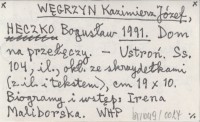 WĘGRZYN Kazimierz Józef,
HECZKO Bogusław 1991. Dom
na przełęczy. – Ustroń. Ss.
104, il., okł. ze skrzydełkami
(z il. i tekstem), cm 19 x 10.
Biogramy i wstęp: Irena
Maliborska. WHP